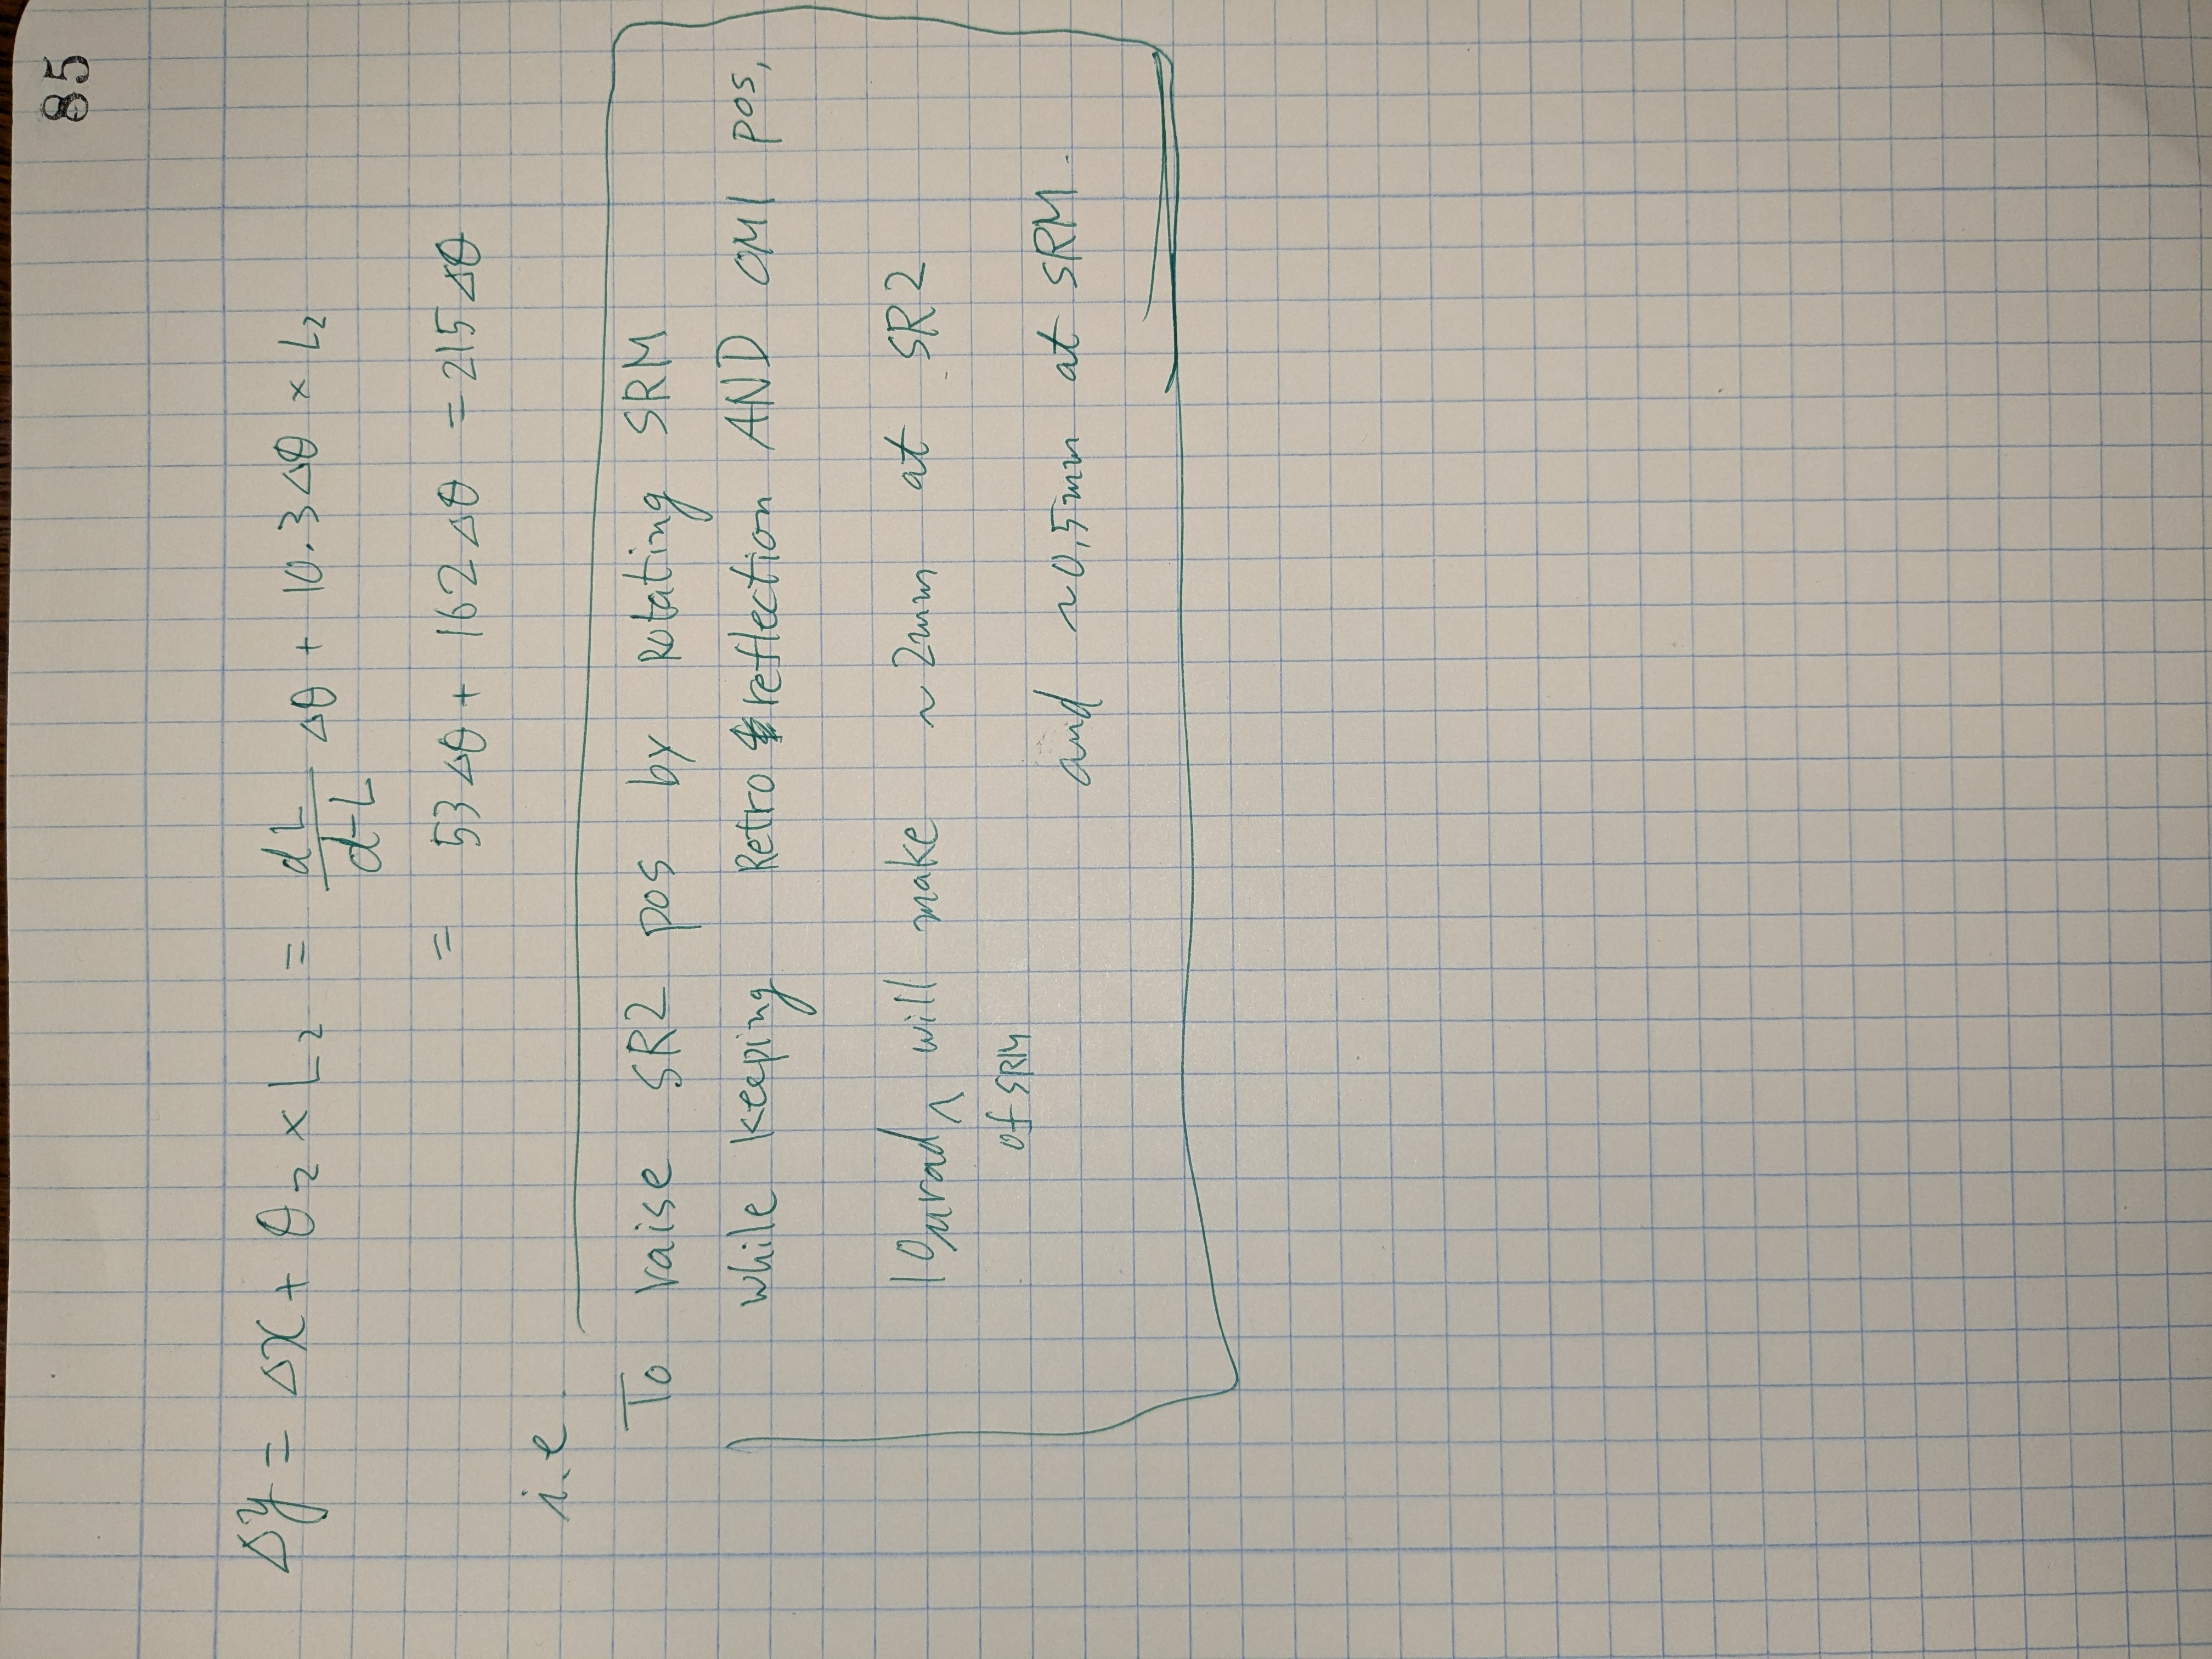 85
Δy = Δx + θ₂ × L₂ = dL/(d-L) Δθ + 10.3Δθ × L₂
= 53Δθ + 162Δθ = 215Δθ
i.e
To raise SR2 pos by rotating SRM
while keeping Retro reflection AND OM1 pos,
10μrad ^ will make ~ 2mm at SR2
of SRM
and ~0,5mm at SRM.